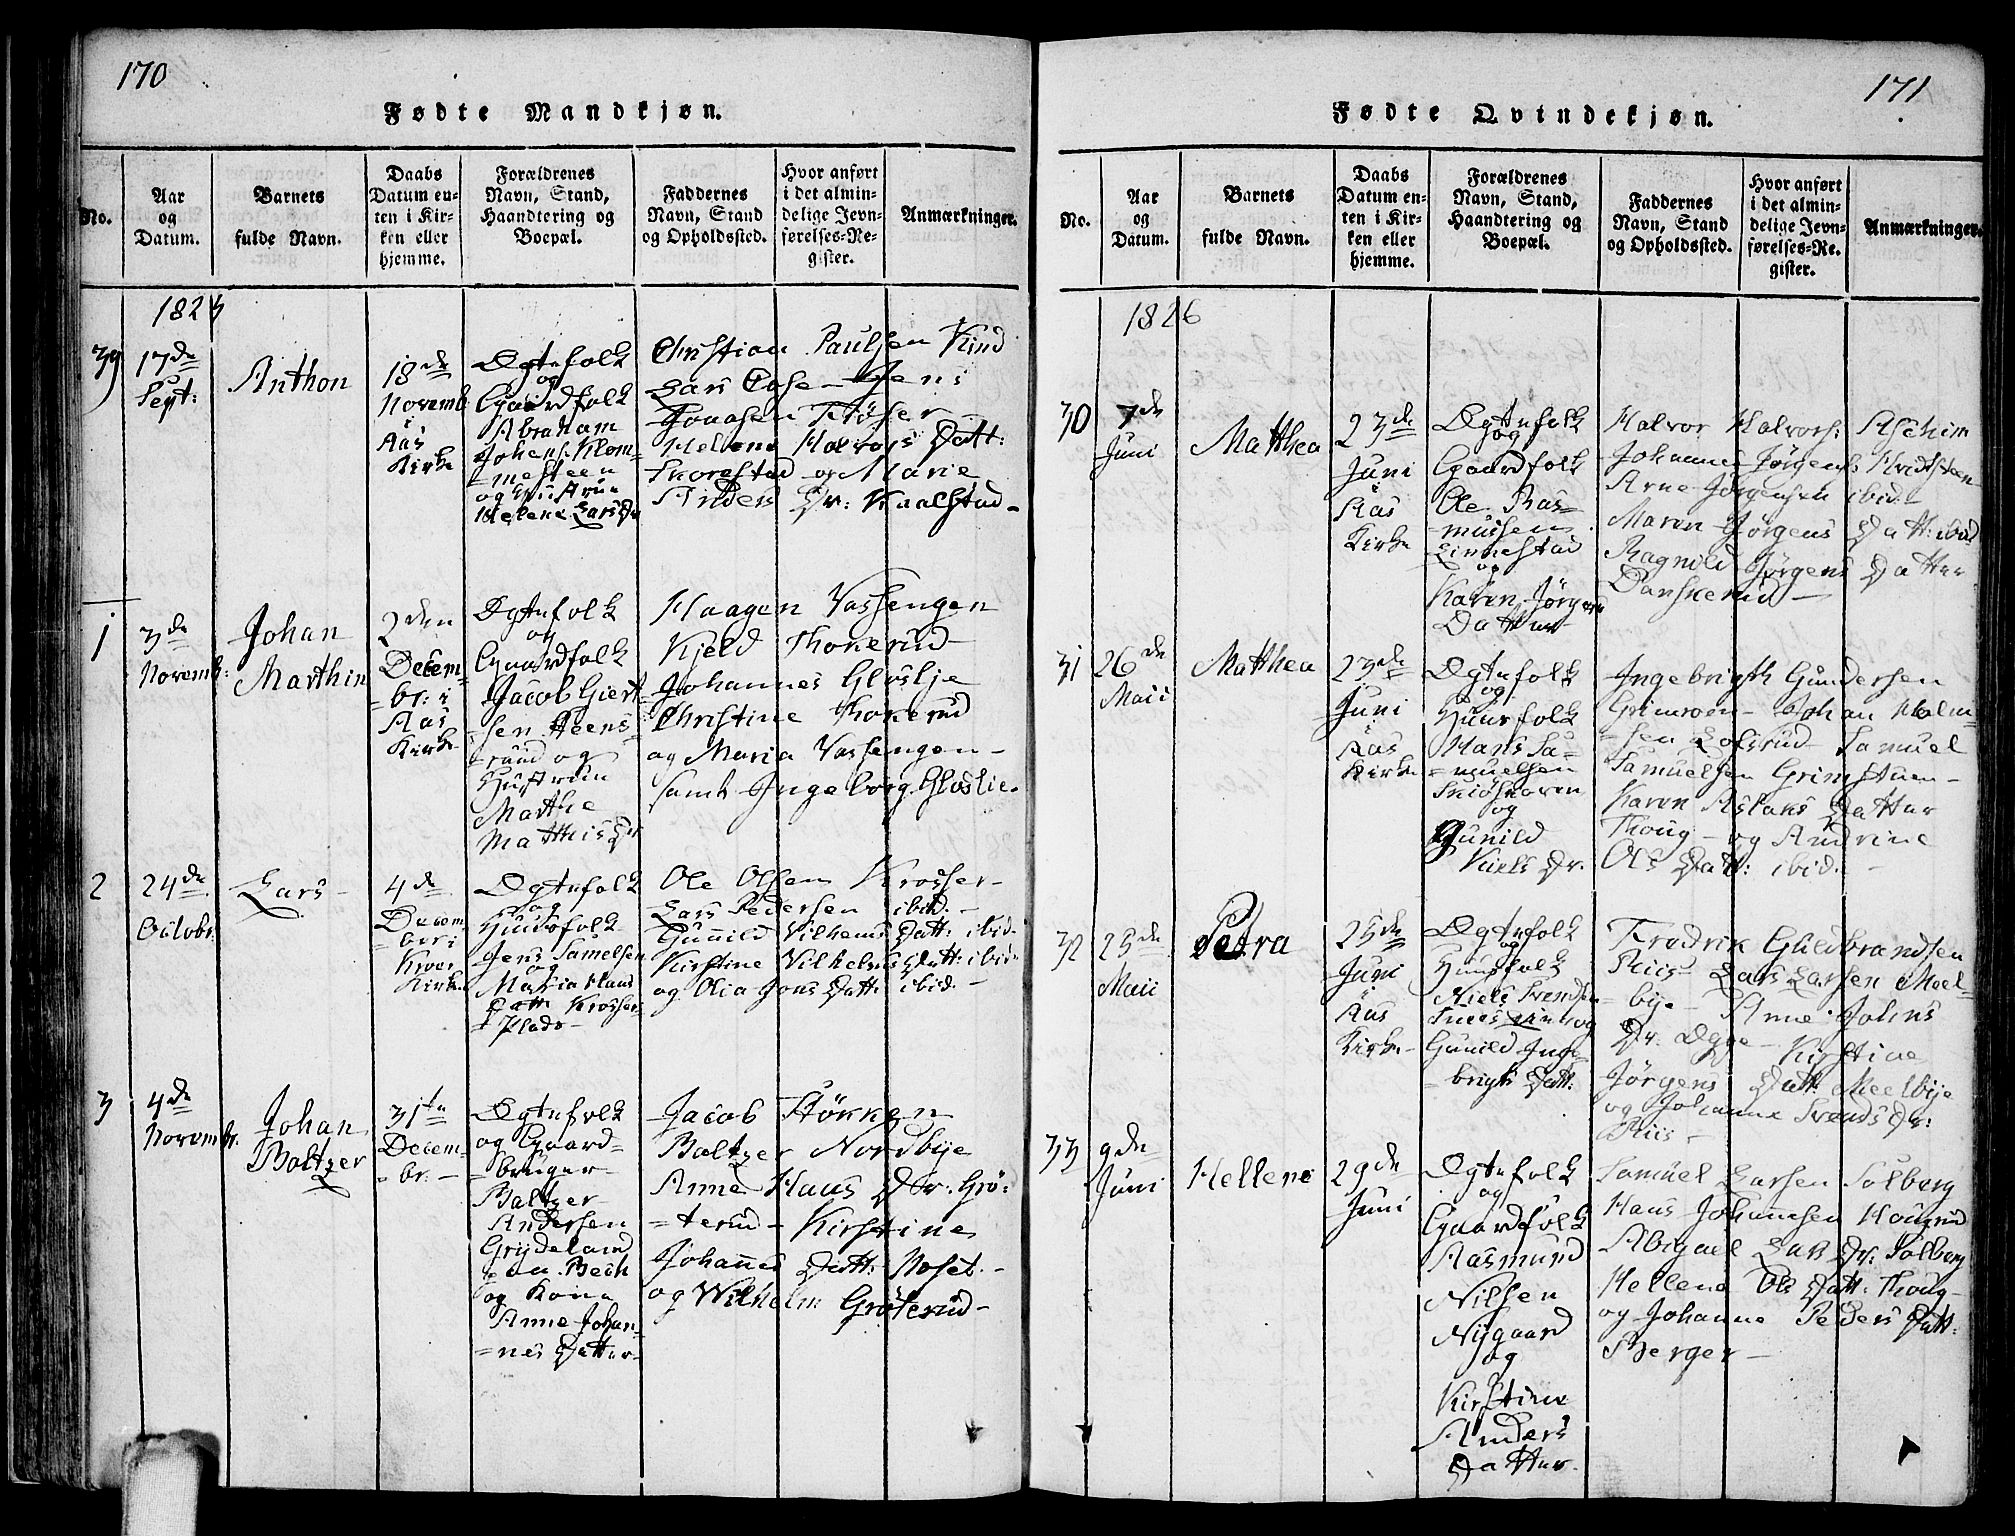 170
Fødte Mandkjøn.
No.
Aar
og
Datum.
Barnets
fulde Navn.
Daabs
Datum en-
ten i Kir-
ken eller
hjemme.
Forældrenes
Navn, Stand,
Haandtering og
Boepæl.
Faddernes
Navn, Stand
og Opholdssted.
Hvor anført
i det almin-
delige Jevn-
førelses-Re-
gister.
Anmærkninger.
39
17de
Sept:
Anthon
18de
Novemb
i
Aas
Kirke
Ægtefolk
og
Gaardfolk
Abraham
Johans. Klom-
mesteen
og Hustrue
Helene Lars Dr
Christian Paulsen Kind
Lars Ose - Jens
Jonasen Fløser
Helene Halvors Datt:
Skorestad og Marie
Anders Dr: Kaalstad -
1
3de
Novemb:
Johan
Marthin
2den
Decem-
br: i
Aas
Kirke
Ægtefolk
og
Gaardfolk
Jacob Giert
sen Heens-
rund og
Hustrue
Marthe
Matthis Dr
Haagen Vassengen
Kjeld Thokerud
Johannes Gloslje
Christine Thokerud
og Maria Vassengen -
samt Ingeborg Gloslie.
2
24de
Octobr.
Lars -
4de
Decem
ber i
Kroer
Kirke
Ægtefolk
og
Huusfolk
Jens Samelsen
og
Maria Hans
Datt Krosser
Plads -
Ole Olsen Krosser -
Lars Pedersen ibid. -
Gunnild Vilhems Datt: ibid.
Kirstine Vilhelms Datt: ibid.
og Olia Jons Datt: ibid. -
3
4de
Novembr.
Johan
Baltzer
31te
Decem-
br. -
Ægtefolk
og Gaard-
bruger
Baltzer
Andersen
Grydeland
og Kone
Anne Johan-
nes Datter -
Jacob Støkken
Baltzer Nordbye
Anne Hans Dr. Grø-
terud - Kirstine
Johannes Datt: Noset -
og Wilhelm Grøterud -
171
Fødte Qvindekjøn.
No.
Aar
og
Datum.
Barnets
fulde Navn.
Daabs
Datum en-
ten i Kir-
ken eller
hjemme.
Forældrenes
Navn, Stand,
Haandtering og
Boepæl.
Faddernes
Navn, Stand
og Opholdssted.
Hvor anført
i det almin-
delige Jevn-
førelses-Re-
gister.
Anmærkninger.
1826
30
7de
Juni
Matthea
23de
Juni
i
Aas
Kirke
Ægtefolk
og
Gaardfolk
Ole Ras-
mussen
Linnestad
og
Karen Jørgens
Datter
Halvor Halvors: Aschim
Johannes Jørgens: Hvidsteen
Arne Jørgensen ibid. -
Maren Jørgens Datt: ibid
Ragnild Jørgens Datter
Danskerud -
31
26de
Maii
Matthea
23de
Juni
i
Aas
Kirke
Ægtefolk
og
Huusfolk
Hans Sa-
muelsen
Skioskoven
og
Gunild
Niels Dr.
Ingebrigth Gundersen
Grimsroen - Johan Holm-
sen Lofsrud Samuel
Samuelsen Grimstuen -
Karen Aslaks Datter
Thoug - og Andrine
Ols Datt: ibid. -
32
25de
Maii
Petra
25de
Juni
i
Aas
Kirke -
Ægtefolk
og
Huusfolk
Niels Svendsen
og
Gunild Inge-
brigts Datt:
Fredrik Guldbrandsen
Riis - Lars Larsen Meel-
bye - Anne Johns
Dr. Ægge - Kirstine
Jørgens Datt: Meelbye
og Johanne Svends Dr:
Riis -
33
9de
Juni
Hellene
29de
Juni
Ægtefolk
og
Gaardfolk
Rasmund
Nilsen
Nygaard
og
Kirstine
Anders
Datter.
Samuel Larsen Solberg
Hans Johannsen Hougrud
Abigael Lars Dr: Solberg
Hellene Ols Datt: Thoug -
og Johanne Peders Datt:
Berger -